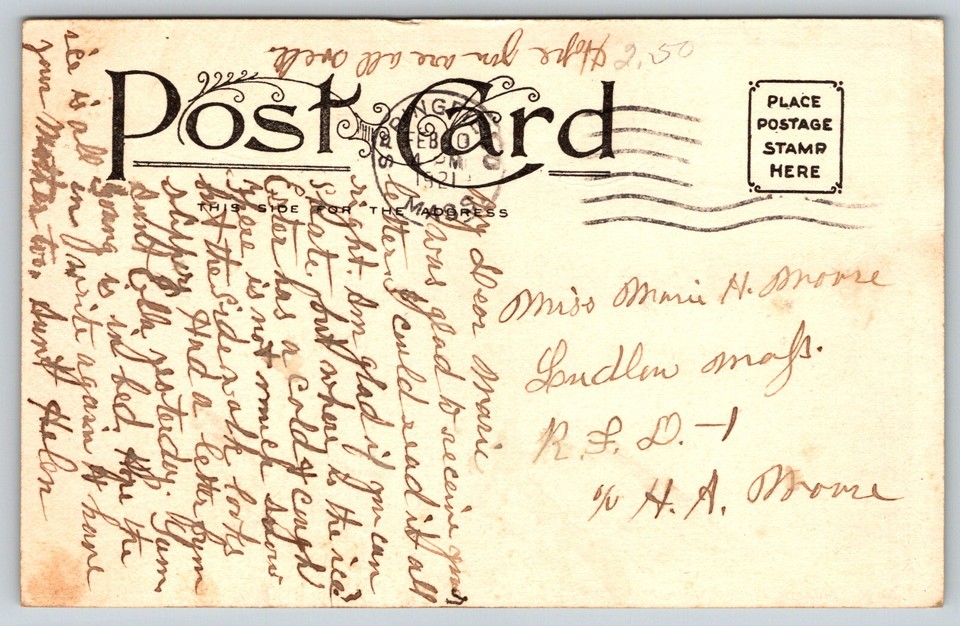 Hope you are all well.
2.50
Post Card
SPRINGFIELD
FEB 10
4 PM
1921
MASS.
THIS SIDE FOR THE ADDRESS
PLACE
POSTAGE
STAMP
HERE
My Dear Marie
I was glad to receive your
letter & could read it all
right. Am glad if you can
skate, but where is the ice?
Ester has a cold & cough
There is not much snow
but the side walk looks
slippery. Had a letter from
Aunt Ella yesterday.
young is in bed, Hope the
ice is all in, write again & have
your Mother too. Aunt Helen
Miss Marie H. Moore
Ludlow Mass.
R. F. D. - 1
c/o H. A. Moore